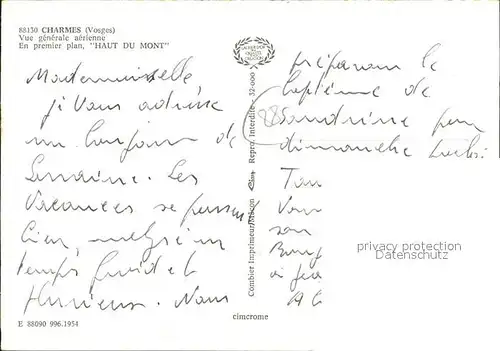 88130 CHARMES (Vosges)
Vue générale aérienne
En premier plan, "HAUT DU MONT"
Mademoiselle
je vous adresse
un bonjour de
Lorraine. Les
vacances se passent
bien, malgré un
temps froid et
pluvieux. Nous
E 88090 996.1954
Combier Imprimeur Mâcon Cim Repro. Interdite - 52-000
cimcrome
préparons le
baptême de
Sandrine pour
dimanche
885
Tou
Vou
son
privacy protection
Datenschutz